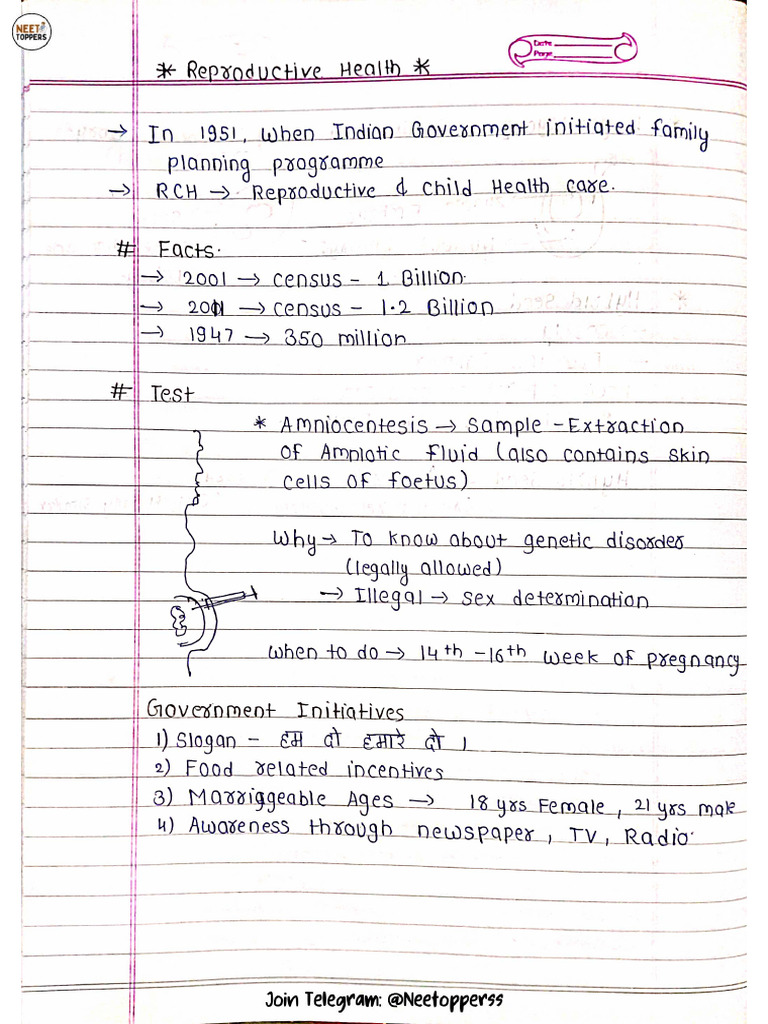 NEET
TOPPERS
Date
Page
* Reproductive Health *
→ In 1951, when Indian Government initiated family
planning programme
→ RCH → Reproductive & Child Health care.
# Facts.
→ 2001 → census - 1 Billion.
→ 2011 → census - 1.2 Billion
→ 1947 → 350 million
# Test
* Amniocentesis → sample - Extraction
of Amniotic fluid (also contains skin
cells of foetus)
Why → To know about genetic disorder
(legally allowed)
→ Illegal → sex determination
When to do → 14th - 16th week of pregnancy
Government Initiatives
1) Slogan - हम दो हमारे दो ।
2) Food related incentives
3) Marriggeable Ages → 18 yrs Female, 21 yrs male
4) Awareness through newspaper, TV, Radio.
Join Telegram: @Neetopperss